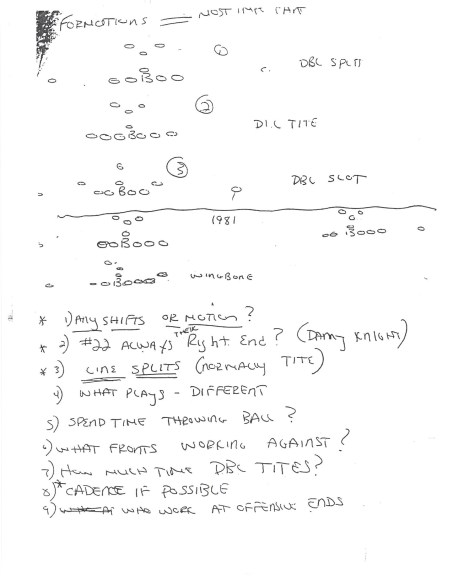 FORMATIONS = MOST IMP. PART
1
DBL SPLIT
2
DBL TITE
3
DBL SLOT
?
1981
WINGBONE
* 1) ANY SHIFTS OR MOTION ?
* 2) #22 ALWAYS THEIR Right End ? (DANNY KNIGHT)
* 3) LINE SPLITS (NORMALLY TITE)
4) WHAT PLAYS - DIFFERENT
5) SPEND TIME THROWING BALL ?
6) WHAT FRONTS WORKING AGAINST ?
7) HOW MUCH TIME DBL TITES ?
8) * CADENCE IF POSSIBLE
9) WHO WORK AT OFFENSIVE ENDS